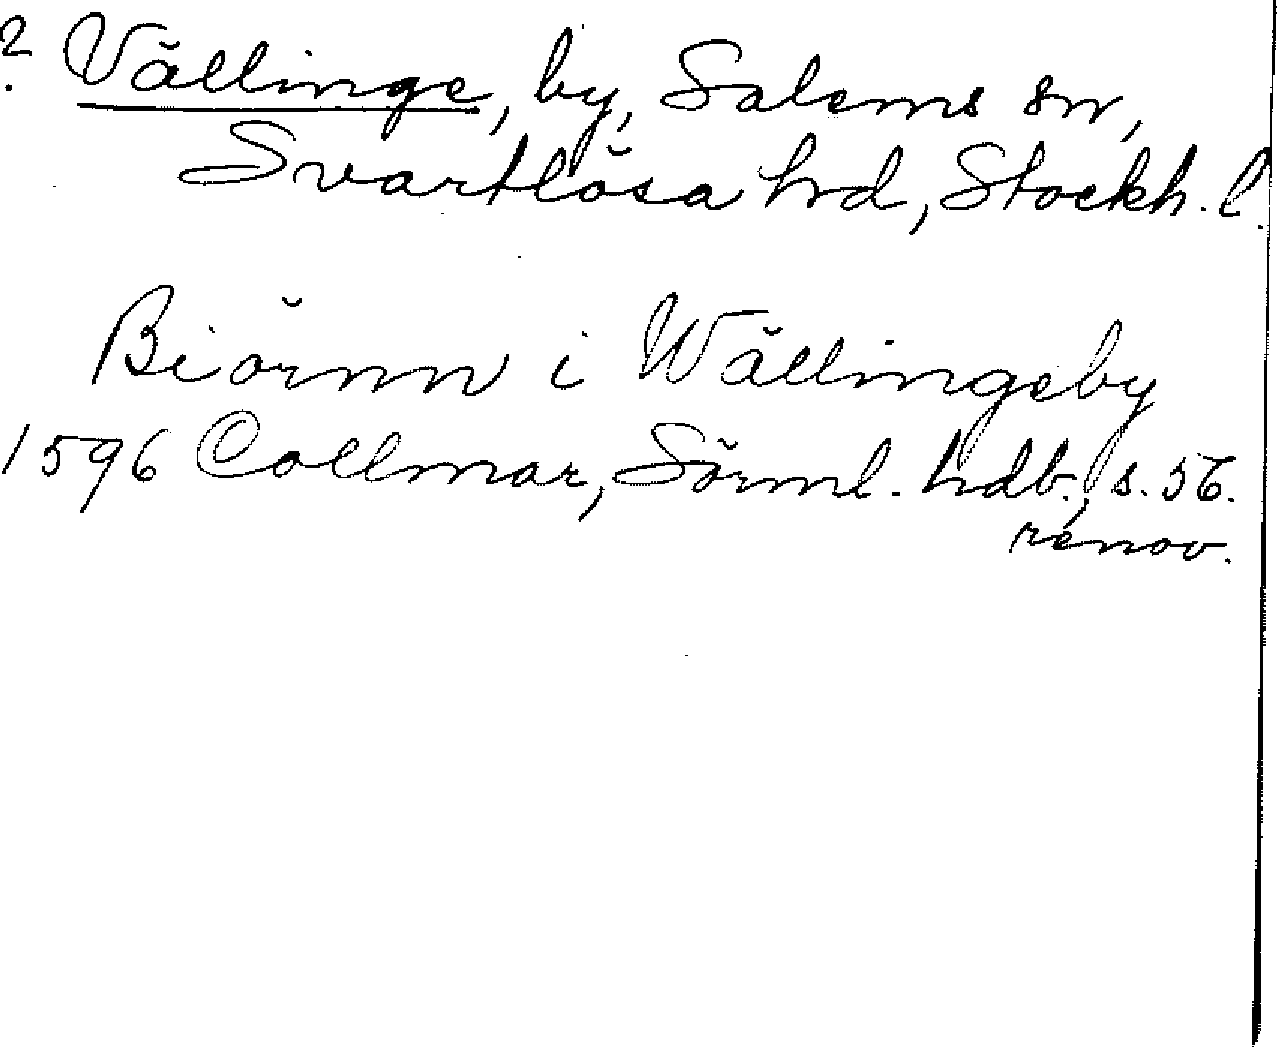 ? Vällinge, by, Salems sn,
Svartlösa hrd, Stockh. l.
Biörnn i Wällingeby
1596 Collmar, Sörml. hdb., s. 56.
renov.